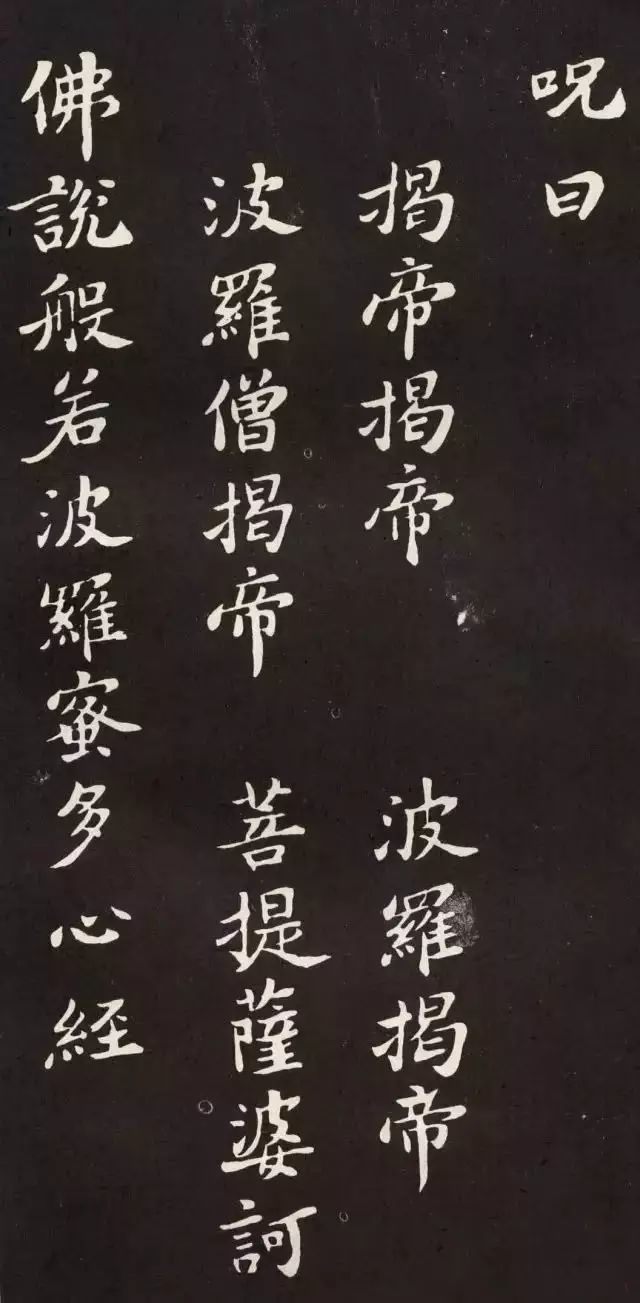 呪曰
揭帝揭帝　波羅揭帝
波羅僧揭帝　菩提薩婆訶
佛說般若波羅蜜多心経